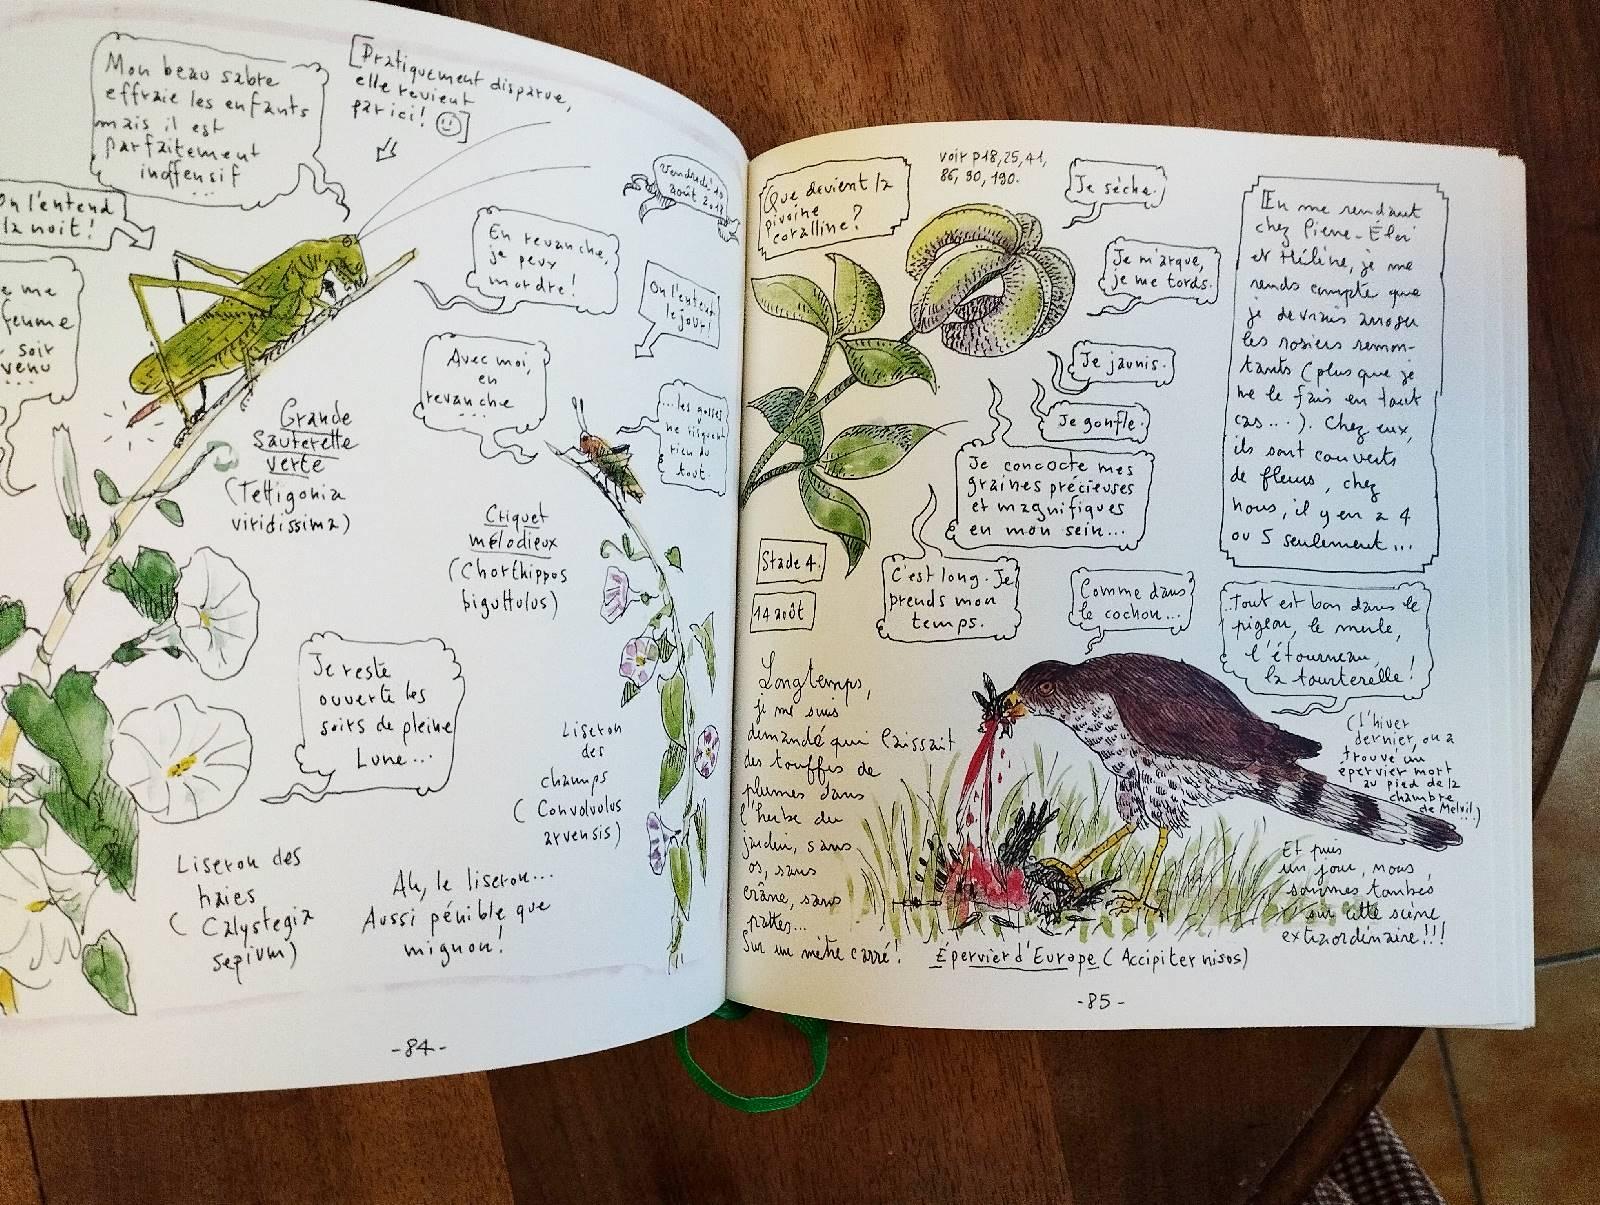 Mon beau sabre
effraie les enfants
mais il est
parfaitement
inoffensif
...
[Pratiquement disparue,
elle revient
par ici! ]
On l'entend
la nuit!
me
femme
soir
venu
...
En revanche,
je peux
mordre!
Vendredi 10
août
On l'entend
le jour!
Avec moi,
en
revanche
...
...les gosses
ne risquent
rien du
tout.
Grande
Sauterelle
verte
(Tettigonia
viridissima)
Criquet
mélodieux
(Chorthippos
biguttulus)
Je reste
ouverte les
soirs de pleine
Lune...
Liseron
des
champs
(Convolvulus
arvensis)
Liseron des
haies
(Calystegia
sepium)
Ah, le liseron...
Aussi pénible que
mignon!
-84-
Que devient la
pivoine
coralline?
voir p18, 25, 41,
86, 90, 190.
Je sèche.
Je m'arque,
je me tords.
Je jaunis.
Je gonfle.
Je concocte mes
graines précieuses
et magnifiques
en mon sein...
C'est long. Je
prends mon
temps.
Stade 4.
14 août
[En me rendant
chez Pierre-Éloi
et Hélène, je me
rends compte que
je devrais arroser
les rosiers remon-
tants (plus que je
ne le fais en tout
cas...). Chez eux,
ils sont couverts
de fleurs, chez
nous, il y en a 4
ou 5 seulement...
Comme dans
le cochon...
Tout est bon dans le
pigeon, le merle,
l'étourneau,
la tourterelle!
Longtemps,
je me suis
demandé qui laissait
des touffes de
plumes dans
l'herbe du
jardin, sans
os, sans
crâne, sans
pattes...
Sur un mètre carré!
(L'hiver
dernier, on a
trouvé un
épervier mort
au pied de la
chambre
de Melvil!)
Et puis
un jour, nous
sommes tombés
sur cette scène
extraordinaire!!!
Epervier d'Europe (Accipiter nisos)
-85-